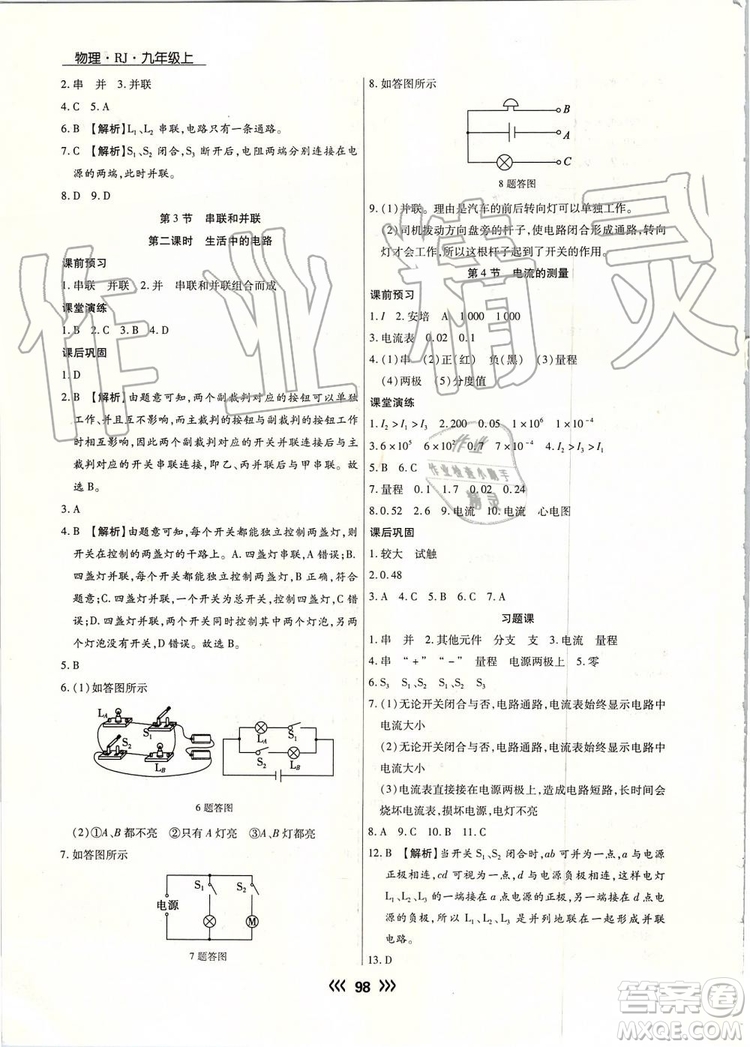 物理·RJ·九年级上
2. 串　并　3. 并联
4. C　5. A
6. B　【解析】L₁、L₂ 串联，电路只有一条通路。
7. C　【解析】S₁、S₂ 闭合，S₃ 断开后，电阻两端分别连接在电
源的两端，此时并联。
8. D　9. D
第 3 节　串联和并联
第二课时　生活中的电路
课前预习
1. 串联　并联　2. 并　串联和并联组合而成
课堂演练
1. B　2. B　3. B　4. D
课后巩固
1. D
2. B　【解析】由题意可知，两个副裁判对应的按钮可以单独
工作、并且互不影响，而主裁判的按钮与副裁判的按钮工作
时相互影响，因此两个副裁判对应的开关并联后与主
裁判对应的开关串联连接，即乙、丙并联后与甲串联。故
选 B。
3. A
4. B　【解析】由题意可知，每个开关都能独立控制两盏灯，则
开关在控制的两盏灯的干路上。A. 四盏灯串联，A 错误；
B. 四盏灯并联，两个开关都能独立控制两盏灯，B 正确；
C. 四盏灯并联，一个开关同时控制四盏灯，C 错误；D. 四
盏灯并联，两个开关只能独立控制其中的两个灯泡，另外
两个灯泡没有开关，D 错误。故选 B。
5. B
6. (1)如答图所示
L_A
S₁
S₂
L_B
L_A
S₁
S₂
L_B
6 题答图
(2)①A、B 都不亮　②只有 A 灯亮　③A、B 灯都亮
7. 如答图所示
电源
S₁
S₂
M
7 题答图
8. 如答图所示
B
A
C
8 题答图
9. (1)并联。理由是汽车的前后转向灯可以单独工作。
(2)司机拨动方向盘旁的杆子，使电路闭合形成通路，转向
灯才会工作，所以这根杆子起到了开关的作用。
第 4 节　电流的测量
课前预习
1. I　2. 安培　A　1 000　1 000
3. 电流表　0.02　0.1
4. (1)串　(2)正(红)　负(黑)　(3)量程
(4)两极　(5)分度值
课堂演练
1. I₂＞I₁＞I₃　2. 200　0.05　1×10⁶　1×10⁻⁴
3. 6×10⁵　6×10²　6×10⁻⁴　4. I₂＞I₁＞I₃
5. B　6. C
7. 量程　0.1　1.7　0.02　0.4
8. 0.52　2.6　9. 电流　10. 电流　心电图
课后巩固
1. 较大　试触
2. 0.48
3. A　4. C　5. A　6. C　7. D
习题课
1. 串　并　2. 其他元件　分支　支　3. 电流　量程
4. 串　“＋”　“－”　量程　电源两极上　5. 零
6. S₃　S₁、S₂　S₁、S₂　S₃
7. (1)无论开关闭合与否，电路通路，电流表始终显示电路中
电流大小
(2)无论开关闭合与否，电路通路，电流表始终显示电路中
电流大小
(3)电流表直接接在电源两极上，造成电路短路，长时间会
烧坏电流表，损坏电源，电灯不亮
8. A　9. C　10. B　11. C
12. B　【解析】当开关 S₁、S₂ 闭合时，ab 可并为一点，a 与电源
正极相连，cd 可视为一点，d 与电源负极相连，这时电灯
L₁、L₂、L₃ 的一端连接在 a 点电源的正极，另一端连接在 d
点电源的负极，所以 L₁、L₂、L₃ 是并列地连接而形成并联
电路。
13. D
98
作业精灵
作业
作业检查小助手
精灵
答案圈
MXQE.COM